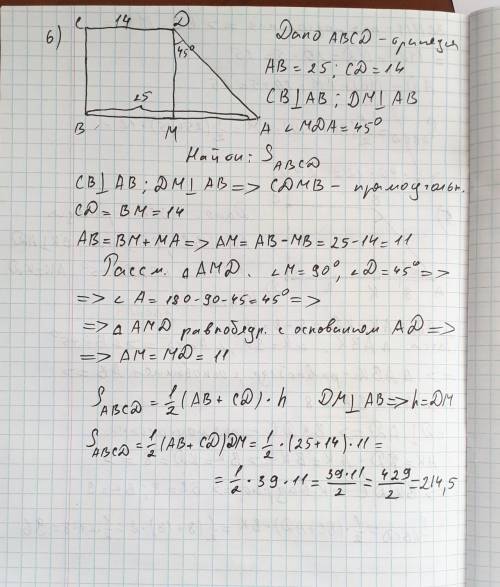 6)
C 14 D
45°
25
B M A
Дано ABCD - трапеция
AB = 25; CD = 14
CB⊥AB; DM⊥AB
∠MDA = 45°
Найти: S_ABCD
CB⊥AB; DM⊥AB => CDMB - прямоугольн.
CD = BM = 14
AB = BM + MA => AM = AB - MB = 25 - 14 = 11
Рассм. △AMD. ∠M = 90°, ∠D = 45° =>
=> ∠A = 180 - 90 - 45 = 45° =>
=> △AMD равнобедр. с основанием AD =>
=> AM = MD = 11
S_ABCD = 1/2 (AB + CD) · h DM⊥AB => h = DM
S_ABCD = 1/2 (AB + CD) DM = 1/2 · (25 + 14) · 11 =
= 1/2 · 39 · 11 = 39·11/2 = 429/2 = 214,5